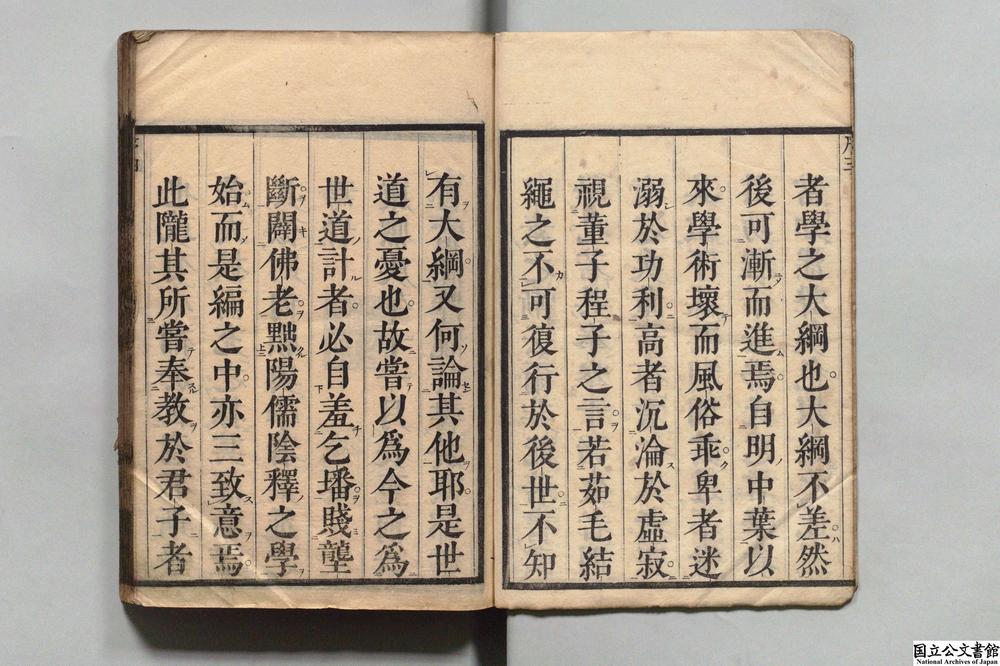 者學之大綱也大綱不差然
後可漸而進焉自明中葉以
來學術壞而風俗乖卑者迷
溺於功利高者沉淪於虛寂
視董子程子之言若茹毛結
繩之不可復行於後世不知
有大綱又何論其他耶是世
道之憂也故嘗以爲今之爲
世道計者必自羞乞墦賤壟
斷闢佛老黜陽儒陰釋之學
始而是編之中亦三致意焉
此隴其所嘗奉教於君子者
国立公文書館
National Archives of Japan